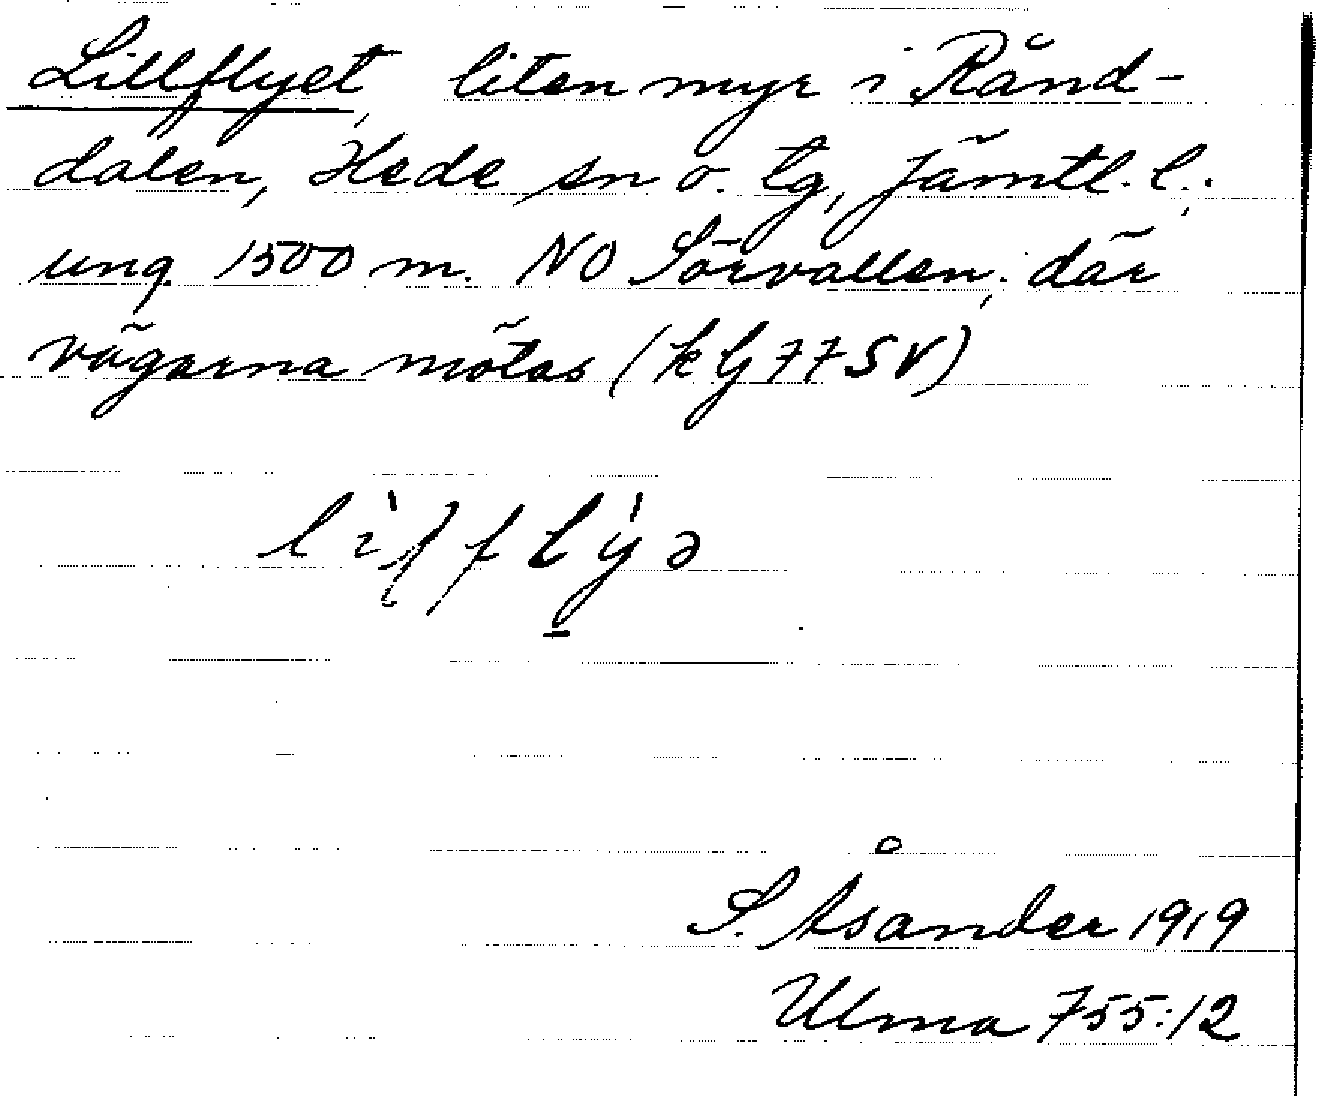 Lillflyet, liten myr i Rånd-
dalen, Hede sn o. tg, Jämtl. l.;
ung. 1500 m. NO Sörvallen; där
vägarna mötas (k G 77 SV)
S. Åsander 1919
Ulma 755:12